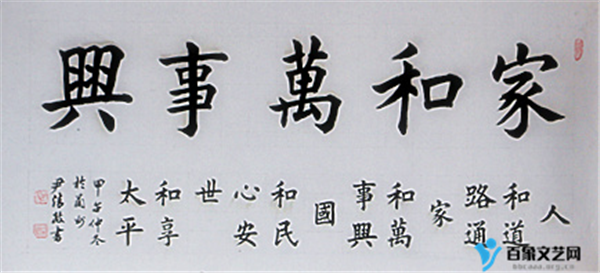 家和萬事興
人
和道
路通
家
和萬
事興
國
和民
心安
世
和享
太平
甲午仲冬
於蘭州
尹書
百象文艺网